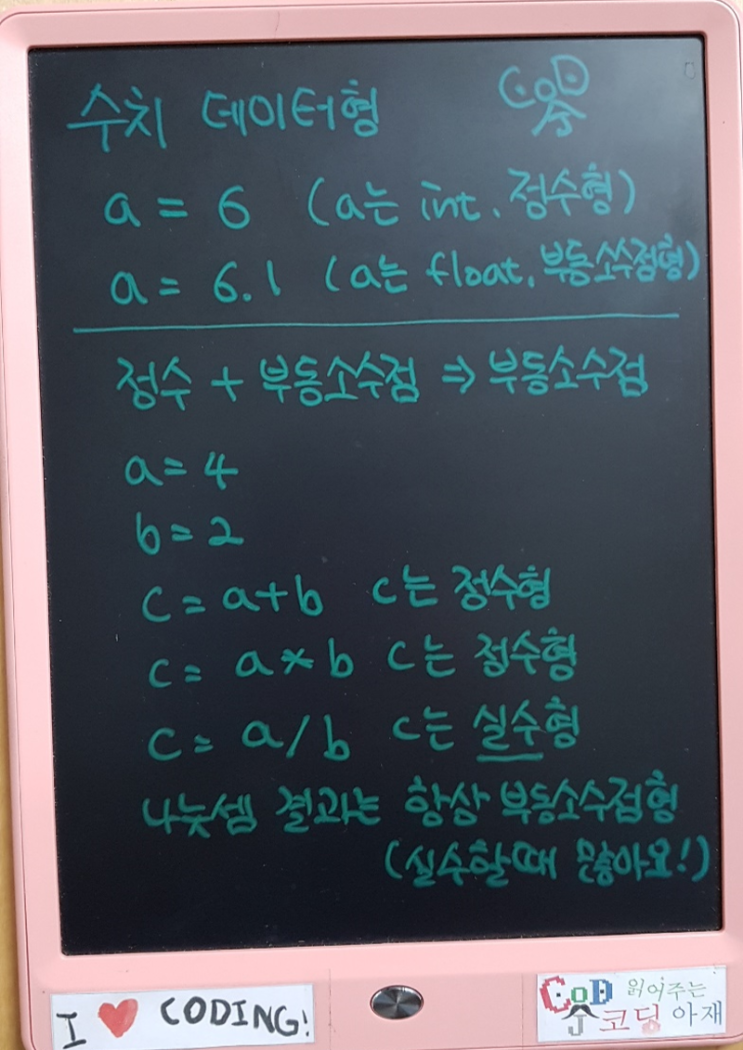 수치 데이터형 CoD
a = 6 (a는 int, 정수형)
a = 6.1 (a는 float, 부동소수점형)
정수 + 부동소수점 ⇒ 부동소수점
a = 4
b = 2
c = a+b c는 정수형
c = a * b c는 정수형
c = a / b c는 실수형
나눗셈 결과는 항상 부동소수점형
(실수할때 많아요!)
I ❤ CODING!
CoD 읽어주는
코딩 아재